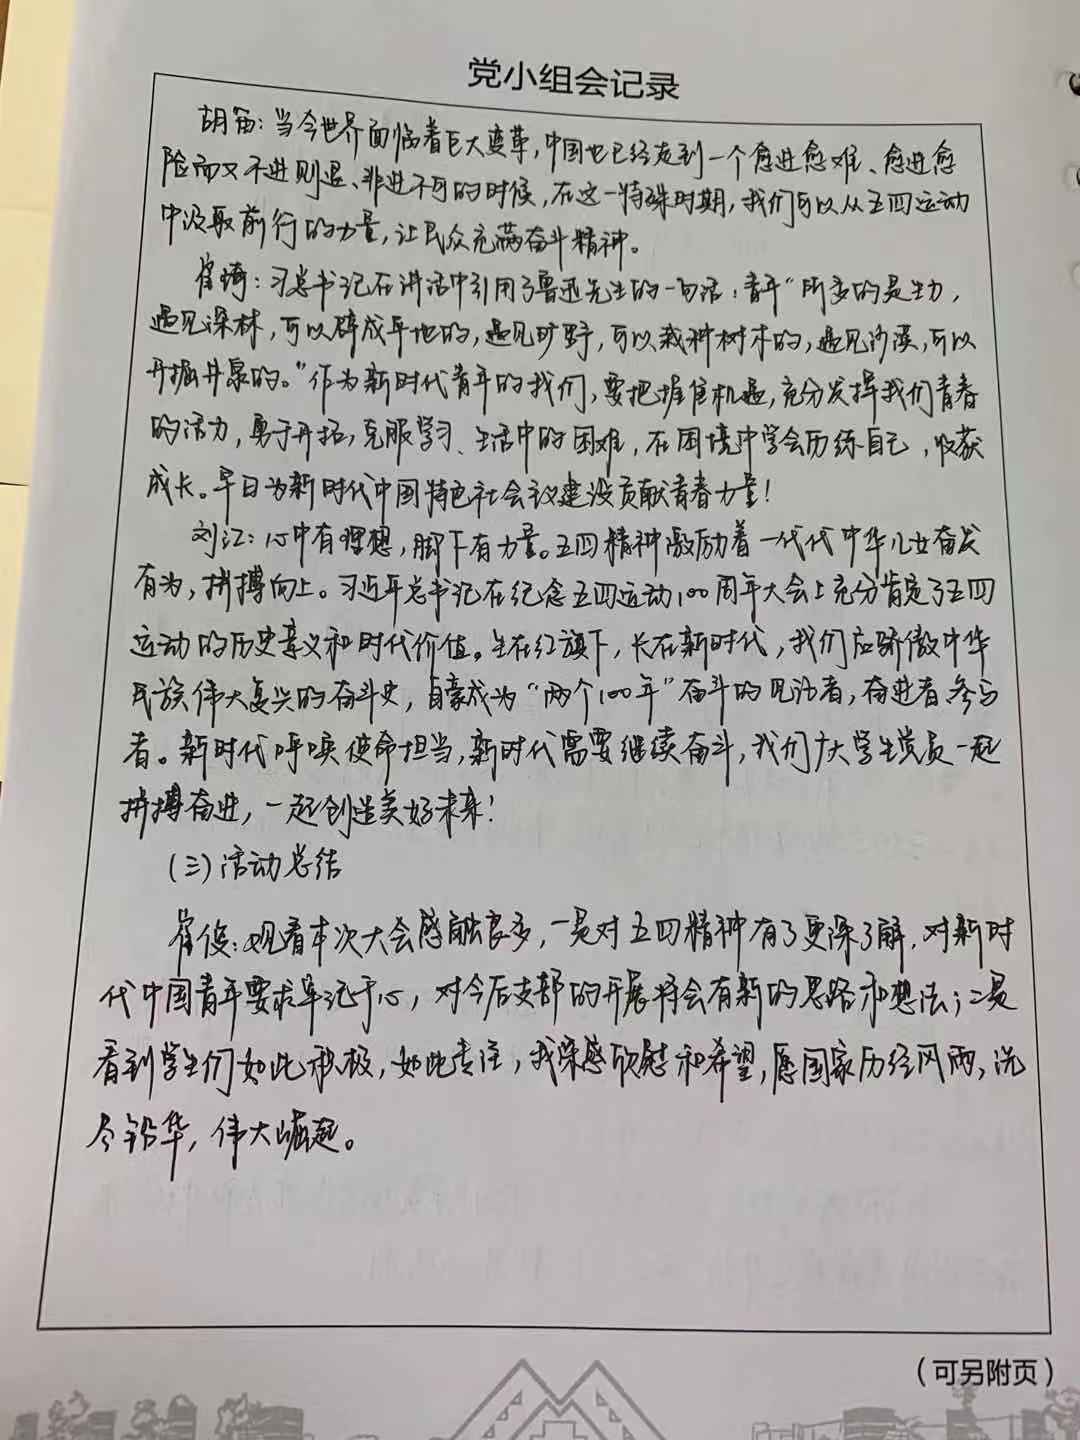 党小组会记录
胡笛:当今世界面临着巨大变革,中国也已经走到一个愈进愈难、愈进愈
险而又不进则退、非进不可的时候,在这一特殊时期,我们可以从五四运动
中汲取前行的力量,让民众充满奋斗精神。
崔琦:习总书记在讲话中引用了鲁迅先生的一句话:青年“所多的是生力,
遇见深林,可以辟成平地的,遇见旷野,可以栽种树木的,遇见沙漠,可以
开掘井泉的。”作为新时代青年的我们,要把握住机遇,充分发挥我们青春
的活力,勇于开拓,克服学习、生活中的困难,在困境中学会历练自己,收获
成长。早日为新时代中国特色社会议建设贡献青春力量!
刘江:心中有理想,脚下有力量。五四精神激励着一代代中华儿女奋发
有为,拼搏向上。习近平总书记在纪念五四运动100周年大会上充分肯定了五四
运动的历史意义和时代价值。生在红旗下,长在新时代,我们应骄傲中华
民族伟大复兴的奋斗史,自豪成为“两个100年”奋斗的见证者,奋进者参与
者。新时代呼唤使命担当,新时代需要继续奋斗,我们广大学生党员一起
拼搏奋进,一起创造美好未来!
(三)活动总结
崔俊:观看本次大会感触良多,一是对五四精神有了更深了解,对新时
代中国青年要求牢记于心,对今后支部的开展将会有新的思路和想法;二是
看到学生们如此积极,如此专注,我深感欣慰和希望,愿国家历经风雨,洗
尽铅华,伟大崛起。
(可另附页)